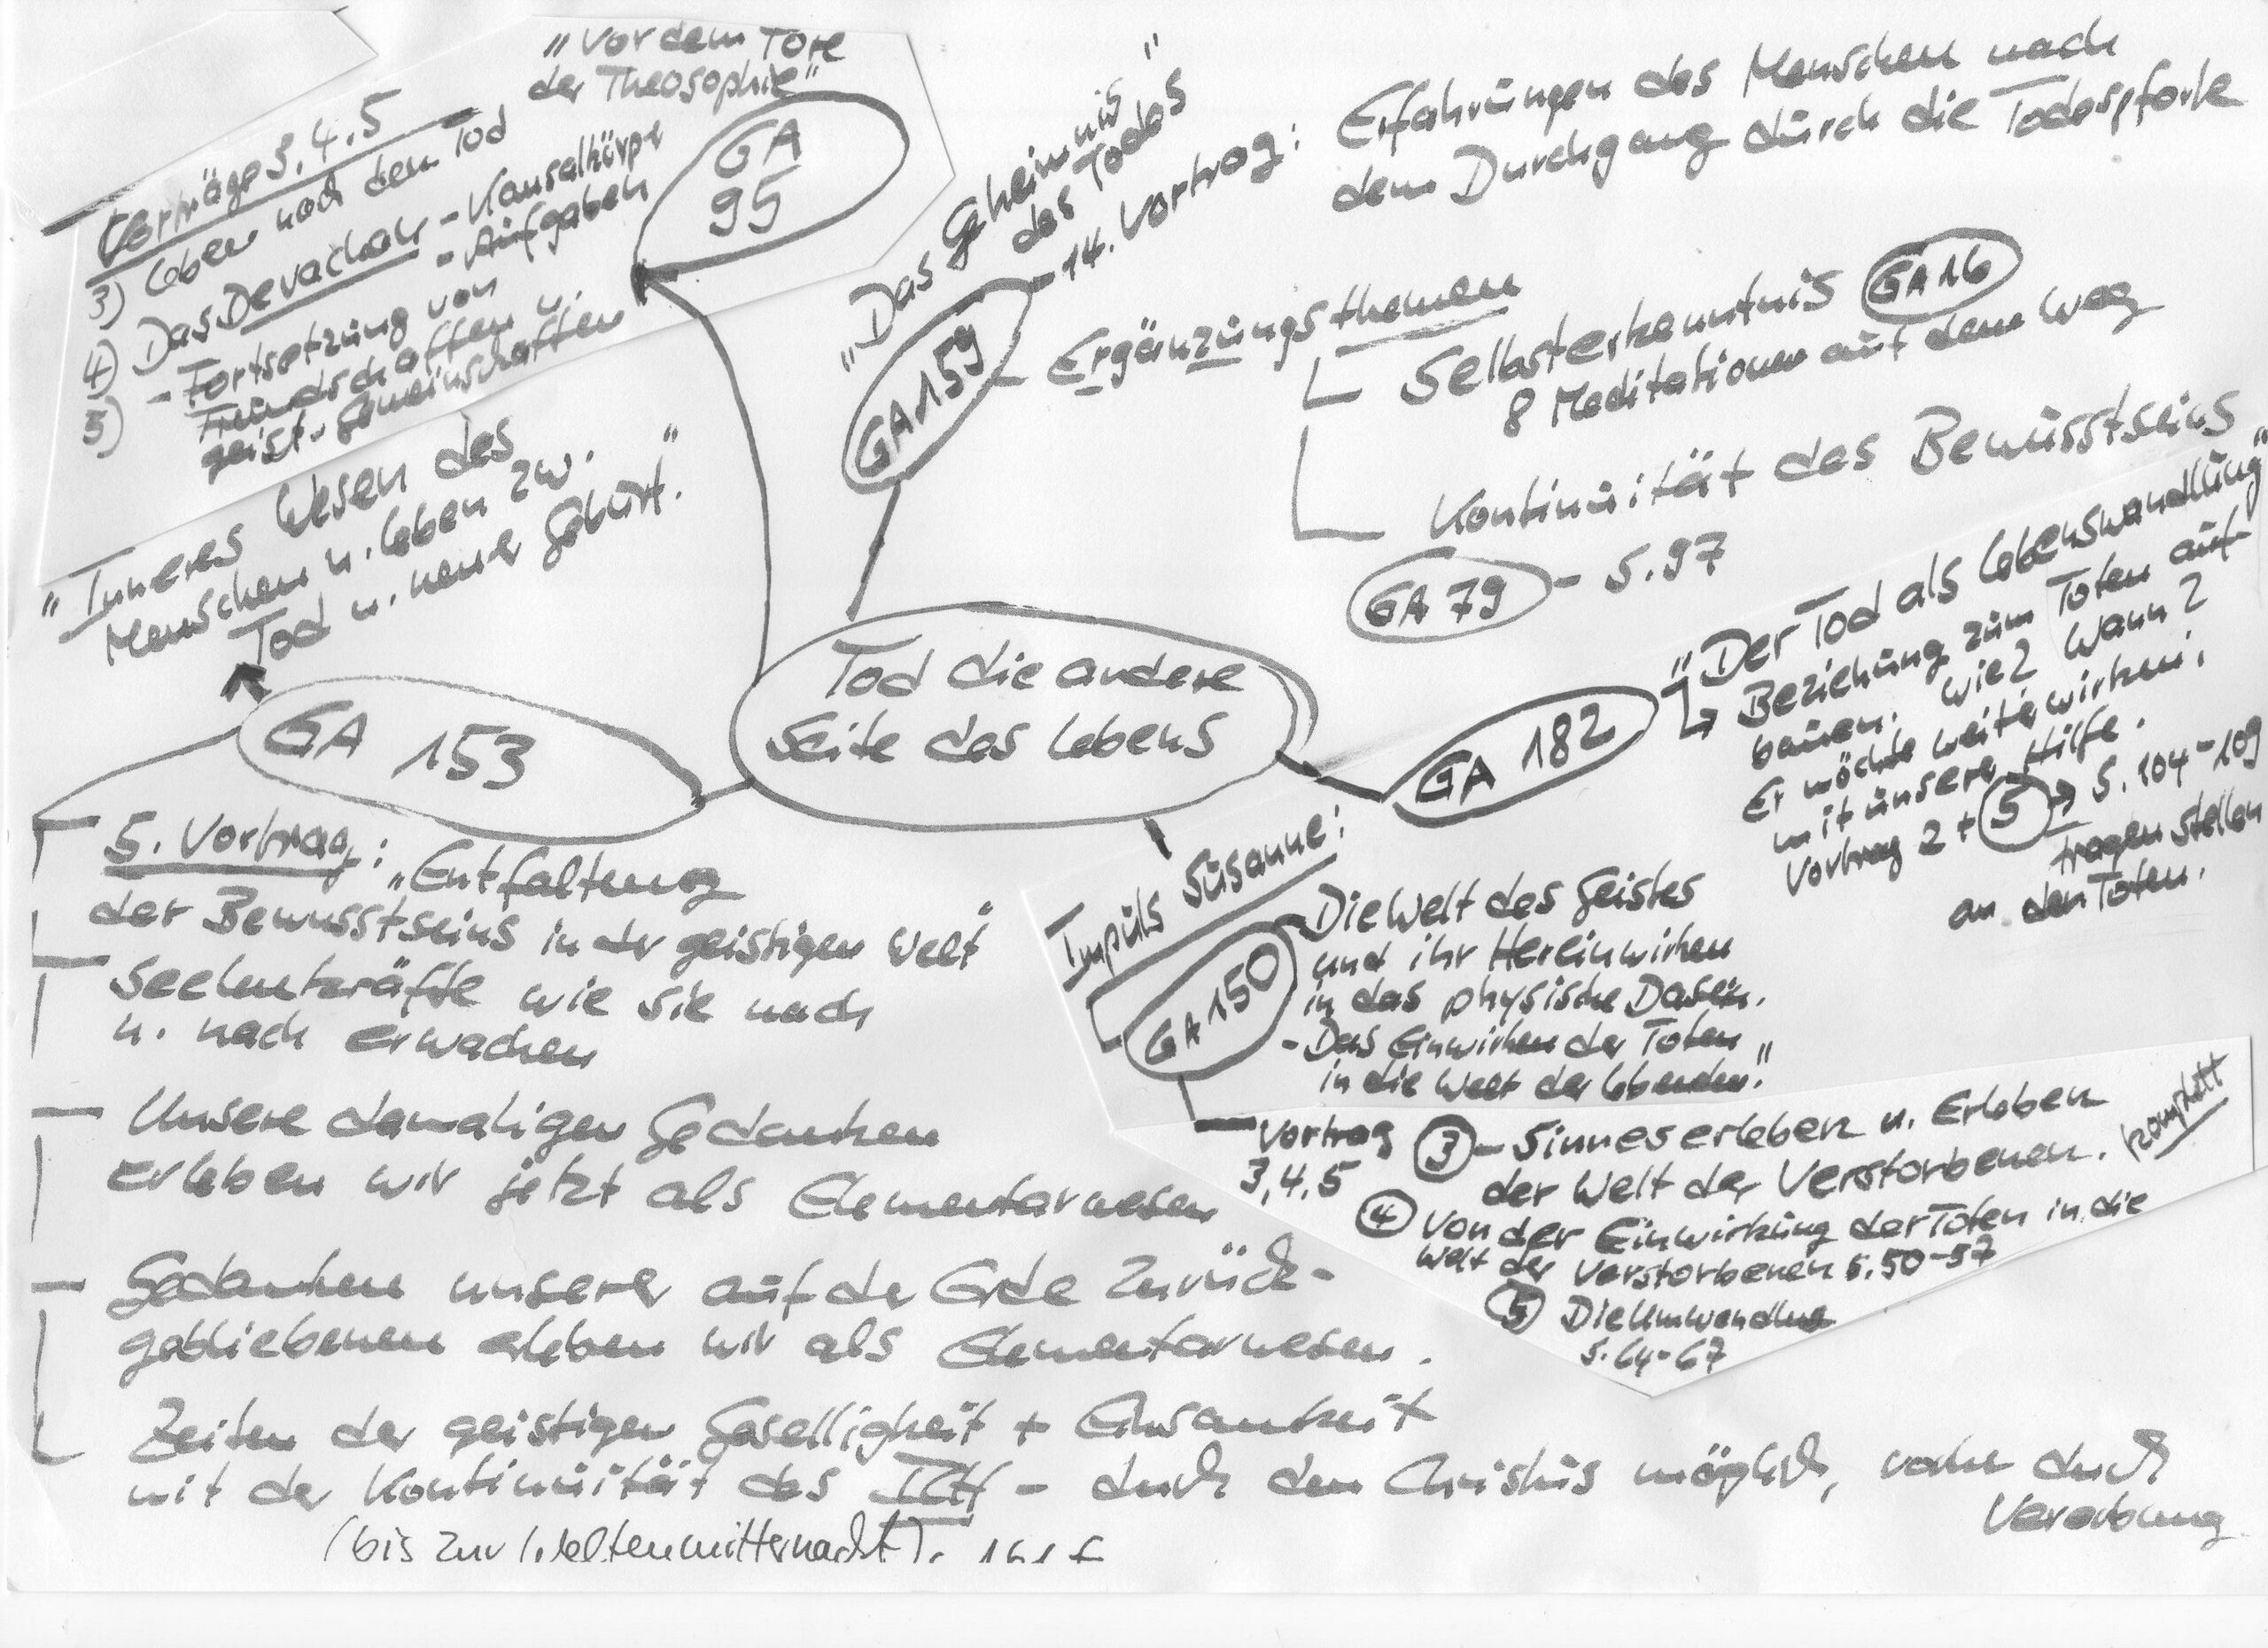 „Vor dem Tore
der Theosophie"
GA
95
Vorträge 3.4.5
3) Leben nach dem Tod
4) Das Devachan - Kausalkörper
- Aufgaben
5) - Fortsetzung von
Freundschaften u.
geist. Gemeinschaften
„Das Geheimnis
des Todes"
GA 159
- 14. Vortrag: Erfahrungen des Menschen nach
dem Durchgang durch die Todespforte
- Ergänzungsthemen
Selbsterkenntnis GA 16
8 Meditationen auf dem Weg
Kontinuität des Bewusstseins
GA 79 - S. 97
„Inneres Wesen des
Menschen u. Leben zw.
Tod u. neuer Geburt."
GA 153
Tod die andere
Seite des Lebens
GA 182
„Der Tod als Lebenswandlung"
Beziehung zum Toten auf-
bauen. Wie? Wann?
Er möchte weiterwirken.
mit unserer Hilfe.
Vortrag 2 + 5 → S. 104-109
Fragen stellen
an den Toten.
5. Vortrag: „Entfaltung
der Bewusstseins in der geistigen Welt"
Seelenkräfte wie sie nach
u. nach erwachen
Unsere damaligen Gedanken
erleben wir jetzt als Elementarwesen
Gedanken unserer auf der Erde Zurück-
gebliebenen erleben wir als Elementarwesen.
Zeiten der geistigen Geselligkeit + Einsamkeit
mit der Kontinuität des ICH - durch den Christus möglich, vorher durch
Vererbung
(bis zur Weltenmitternacht).
Impuls Susanne:
GA 150
Die Welt des Geistes
und ihr Hereinwirken
in das physische Dasein.
- Das Einwirken der Toten
in die Welt der Lebenden."
Vortrag
3,4,5
3 - Sinneserleben u. Erleben
der Welt der Verstorbenen. komplett
4 Von der Einwirkung der Toten in die
Welt der Verstorbenen S. 50-57
5 Die Umwandlung
S. 64-67